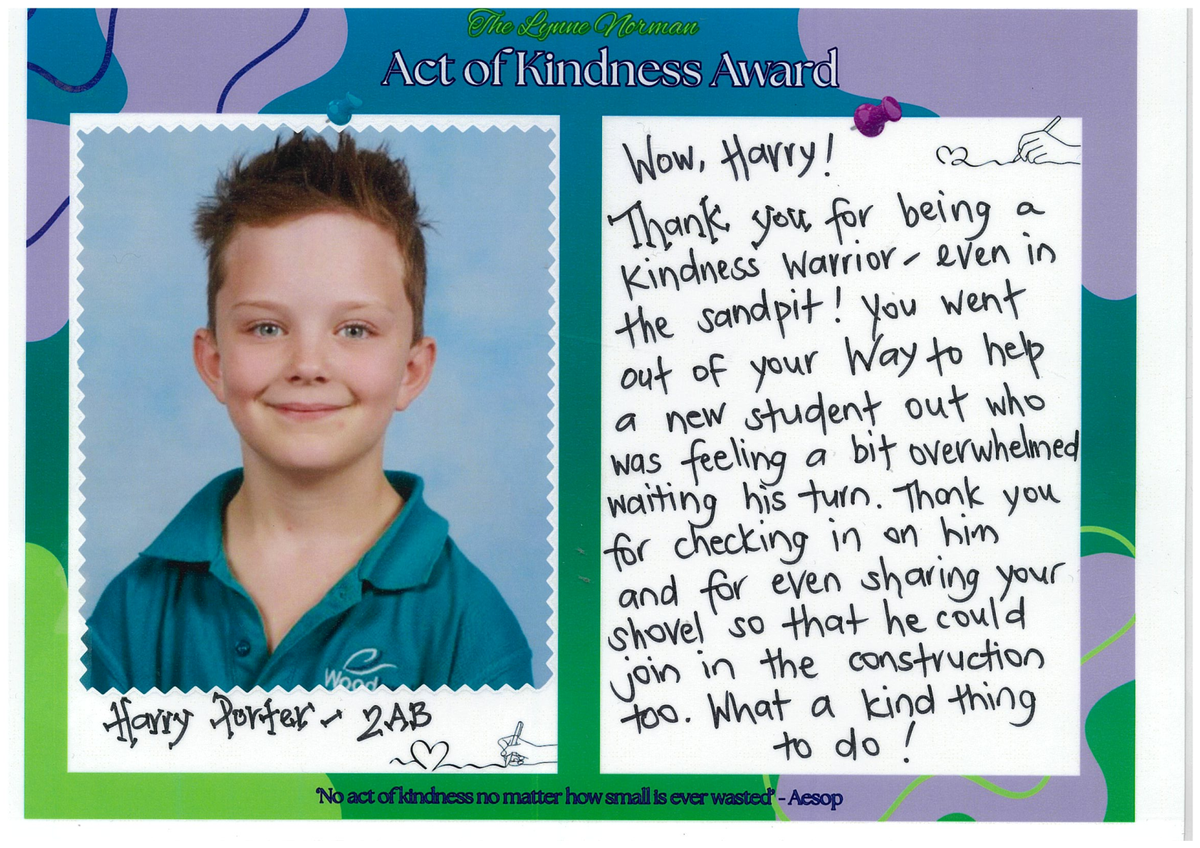 The Lynne Norman
Act of Kindness Award
Wood
Harry Porter - 2AB
Wow, Harry!
Thank you for being a
kindness warrior - even in
the sandpit! You went
out of your way to help
a new student out who
was feeling a bit overwhelmed
waiting his turn. Thank you
for checking in on him
and for even sharing your
shovel so that he could
join in the construction
too. What a kind thing
to do!
'No act of kindness no matter how small is ever wasted' - Aesop